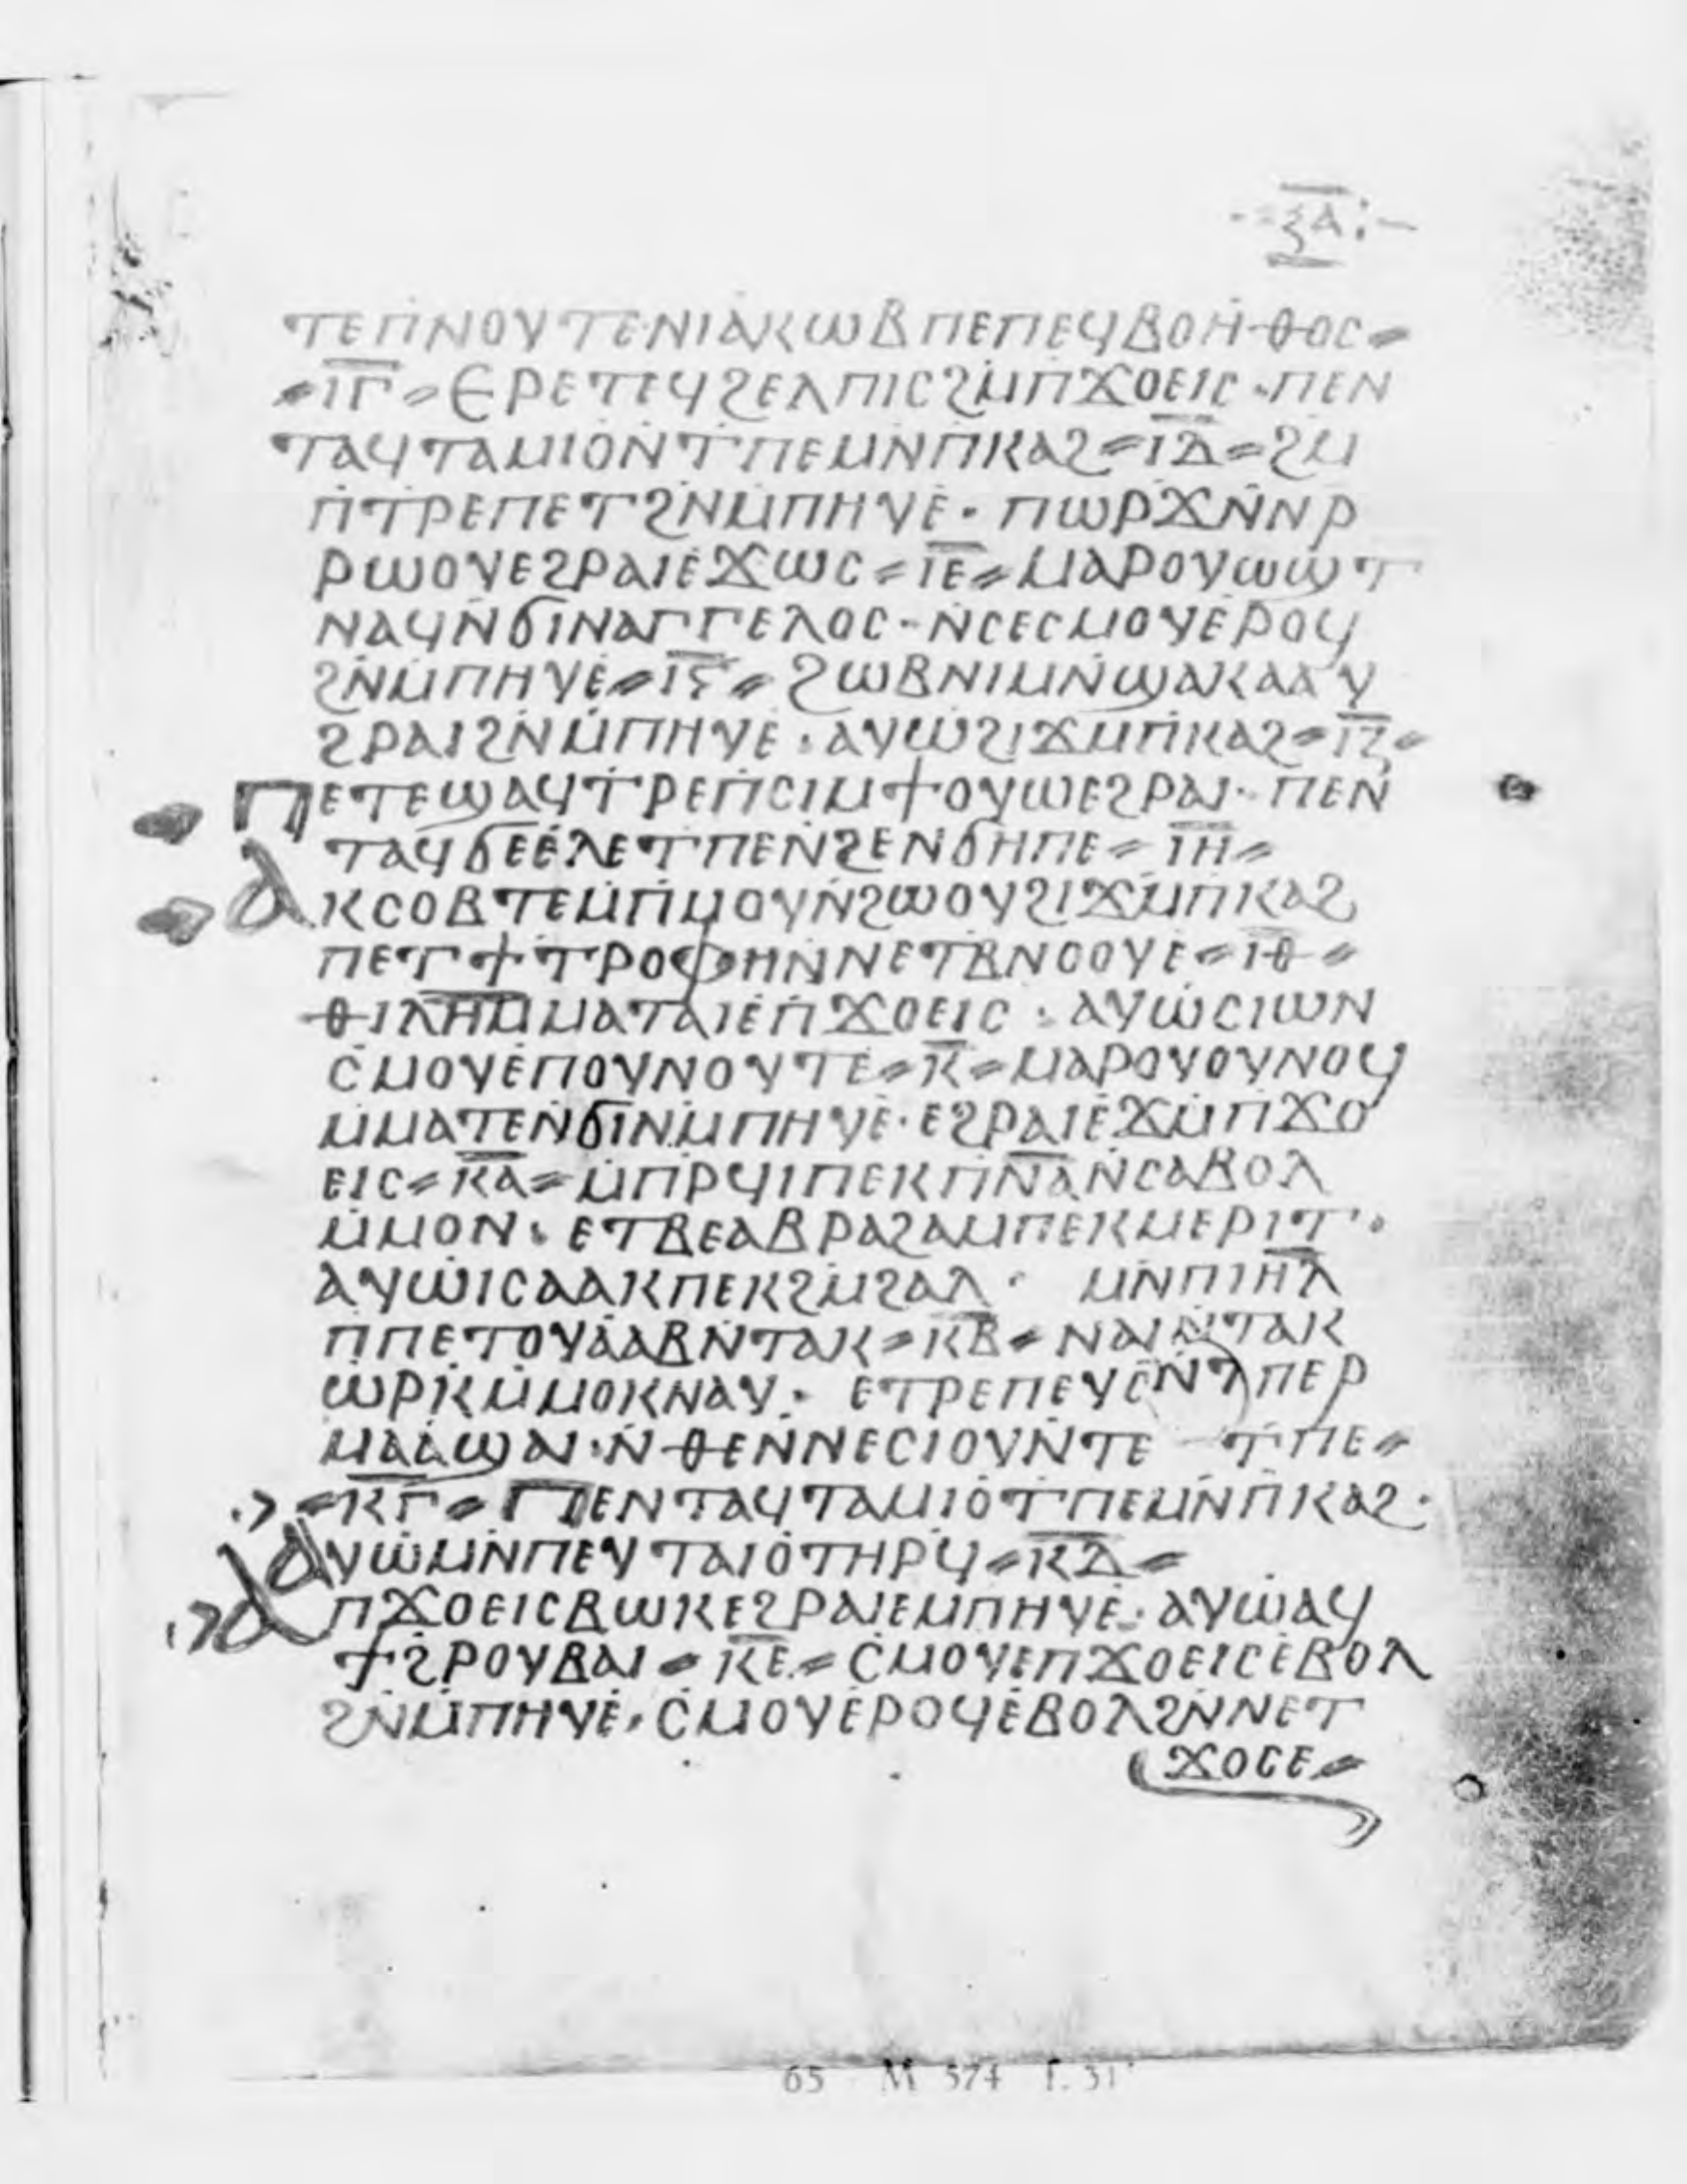 ⲝⲁ
ⲧⲉⲡⲛⲟⲩⲧⲉⲛⲓⲁⲕⲱⲃⲡⲉⲡⲉϥⲃⲟⲏⲑⲟⲥ=
=ⲓ̅ⲅ̅=ⲉⲣⲉⲧⲉϥϩⲉⲗⲡⲓⲥϩⲙⲡϫⲟⲉⲓⲥ·ⲡⲉⲛ
ⲧⲁϥⲧⲁⲙⲓⲟⲛⲧⲡⲉⲙⲛⲡⲕⲁϩ=ⲓ̅ⲇ̅=ϩⲙ
ⲡⲧⲣⲉⲡⲉⲧϩⲛⲙⲡⲏⲩⲉ·ⲡⲱⲣϫⲛⲛⲣ
ⲣⲱⲟⲩⲉϩⲣⲁⲓⲉϫⲱⲥ=ⲓ̅ⲉ̅=ⲙⲁⲣⲟⲩⲱϣⲧ
ⲛⲁϥⲛϭⲓⲛⲁⲅⲅⲉⲗⲟⲥ·ⲛⲥⲉⲥⲙⲟⲩⲉⲣⲟϥ
ϩⲛⲙⲡⲏⲩⲉ=ⲓ̅ⲋ̅=ϩⲱⲃⲛⲓⲙⲛϣⲁⲕⲁⲁⲩ
ϩⲣⲁⲓϩⲛⲙⲡⲏⲩⲉ·ⲁⲩⲱϩⲓϫⲙⲡⲕⲁϩ=ⲓ̅ⲍ̅=
ⲡⲉⲧⲉϣⲁϥⲧⲣⲉⲡⲥⲓⲙϯⲟⲩⲱⲉϩⲣⲁⲓ·ⲡⲉⲛ
ⲧⲁϥϭⲉⲉⲗⲉⲧⲡⲉⲛϩⲉⲛϭⲏⲡⲉ=ⲓ̅ⲏ̅=
ⲁⲕⲥⲟⲃⲧⲉⲙⲡⲙⲟⲩⲛϩⲱⲟⲩϩⲓϫⲙⲡⲕⲁϩ
ⲡⲉⲧϯⲧⲣⲟⲫⲏⲛⲛⲉⲧⲃⲛⲟⲟⲩⲉ=ⲓ̅ⲑ̅=
ⲑⲓⲗ̅ⲏ̅ⲙ̅ⲙⲁⲧⲁⲓⲉⲡϫⲟⲉⲓⲥ·ⲁⲩⲱⲥⲓⲱⲛ
ⲥⲙⲟⲩⲉⲡⲟⲩⲛⲟⲩⲧⲉ=ⲕ̅=ⲙⲁⲣⲟⲩⲟⲩⲛⲟϥ
ⲙⲙⲁⲧⲉⲛϭⲓⲛⲙⲡⲏⲩⲉ·ⲉϩⲣⲁⲓⲉϫⲙⲡϫⲟ
ⲉⲓⲥ=ⲕ̅ⲁ̅=ⲙⲡⲣϥⲓⲡⲉⲕⲡⲛ̅ⲁ̅ⲛⲥⲁⲃⲟⲗ
ⲙⲙⲟⲛ·ⲉⲧⲃⲉⲁⲃⲣⲁϩⲁⲙⲡⲉⲕⲙⲉⲣⲓⲧ·
ⲁⲩⲱⲓⲥⲁⲁⲕⲡⲉⲕϩⲙϩⲁⲗ· ⲙⲛⲡⲓⲏ̅ⲗ̅
ⲡⲡⲉⲧⲟⲩⲁⲁⲃⲛⲧⲁⲕ=ⲕ̅ⲃ̅=ⲛⲁⲓⲛⲧⲁⲕ
ⲱⲣⲕⲙⲙⲟⲕⲛⲁⲩ· ⲉⲧⲣⲉⲡⲉⲩⲥⲛ̅ⲧ̅ⲡⲉⲣ
ⲙⲁⲁϣⲁⲓ·ⲛⲑⲉⲛⲛⲉⲥⲓⲟⲩⲛⲧⲉ ⲧⲡⲉ=
=ⲕ̅ⲅ̅=ⲡⲉⲛⲧⲁϥⲧⲁⲙⲓⲟⲧⲡⲉⲙⲛⲡⲕⲁϩ·
ⲁⲩⲱⲙⲛⲡⲉⲩⲧⲁⲓⲟⲧⲏⲣϥ=ⲕ̅ⲇ̅=
ⲁⲡϫⲟⲉⲓⲥⲃⲱⲕⲉϩⲣⲁⲓⲉⲙⲡⲏⲩⲉ·ⲁⲩⲱⲁϥ
ϯϩⲣⲟⲩⲃⲁⲓ=ⲕ̅ⲉ̅=ⲥⲙⲟⲩⲉⲡϫⲟⲉⲓⲥⲉⲃⲟⲗ
ϩⲛⲙⲡⲏⲩⲉ·ⲥⲙⲟⲩⲉⲣⲟϥⲉⲃⲟⲗϩⲛⲛⲉⲧ
ϫⲟⲥⲉ=
65 M 574 f. 31ʳ